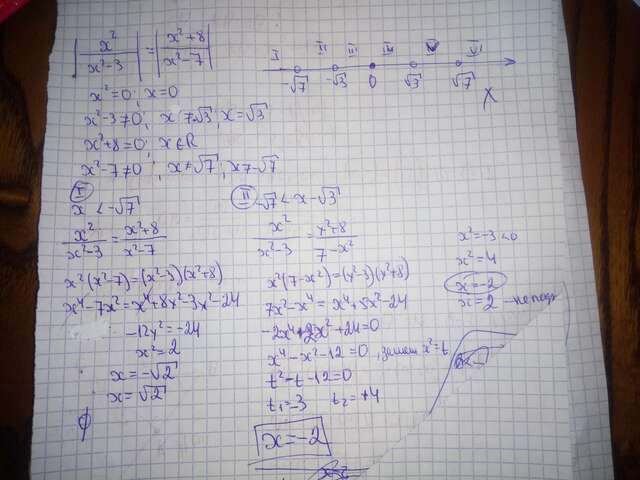 |x²/(x²-3)| = |(x²+8)/(x²-7)|
I II III IV V VI
√7 -√3 0 √3 √7
X
x²=0; x=0
x²-3≠0; x≠√3; x=√3
x²+8=0; x∈R
x²-7≠0; x≠√7; x≠-√7
I
x < -√7
x²/(x²-3) = (x²+8)/(x²-7)
x²(x²-7)=(x²-3)(x²+8)
x⁴-7x²=x⁴+8x²-3x²-24
-12x²=-24
x²=2
x=-√2
x=√2
∅
II -√7 < x -√3
x²/(x²-3) = (x²+8)/(7-x²)
x²(7-x²)=(x²-3)(x²+8)
7x²-x⁴=x⁴+5x²-24
-2x⁴+2x²+24=0
x⁴-x²-12=0, замен x²=t
t²-t-12=0
t₁=-3 t₂=+4
x=-2
x²=-3<0
x²=4
x=-2
x=2 - не подх